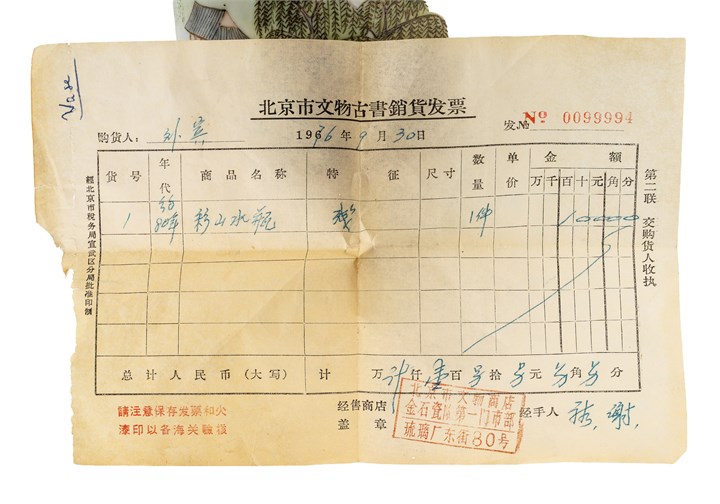 Vase
北京市文物古書銷貨发票
购货人: 刘 1976年9月30日 发 № Nº 0099994
货号 年代 商品名称 特征 尺寸 数量 单价 金额 万千百十元角分
1 80年 粉山水瓶 残 1件 10000
总计人民币（大写） 计 万 仟 壹百 另拾 另元 另角 另分
請注意保存发票和火
漆印以备海关驗植
经售商店
盖章
北京市文物商店
金石瓷 第一门市部
琉璃厂东街80号
经手人 谢
第二联 交购货人收执
經北京市税务局宣武区分局批准印制